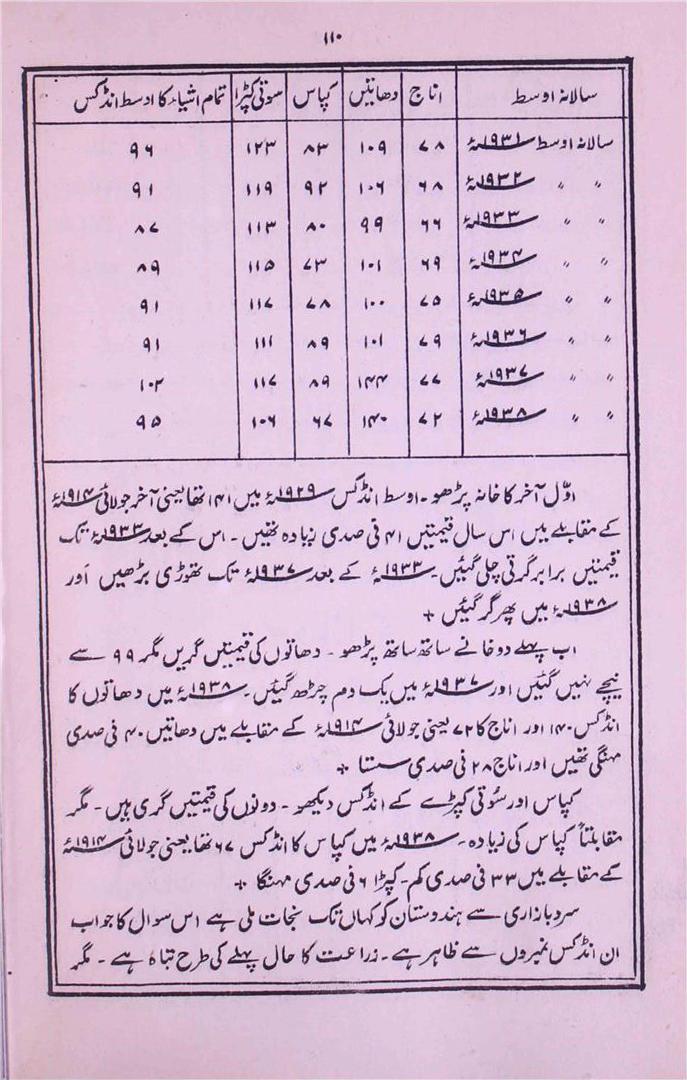 ۱۱۰
سالانہ اوسط | اناج | دھاتیں | کپاس | سوتی کپڑا | تمام اشیاء کا اوسط انڈکس
سالانہ اوسط ۱۹۳۱ء | ۷۸ | ۱۰۹ | ۸۳ | ۱۲۳ | ۹۶
" " ۱۹۳۲ء | ۶۸ | ۱۰۶ | ۹۲ | ۱۱۹ | ۹۱
" " ۱۹۳۳ء | ۶۶ | ۹۹ | ۸۰ | ۱۱۳ | ۸۷
" " ۱۹۳۴ء | ۶۹ | ۱۰۱ | ۷۳ | ۱۱۵ | ۸۹
" " ۱۹۳۵ء | ۷۵ | ۱۰۰ | ۷۸ | ۱۱۷ | ۹۱
" " ۱۹۳۶ء | ۷۹ | ۱۰۱ | ۸۹ | ۱۱۱ | ۹۱
" " ۱۹۳۷ء | ۷۷ | ۱۴۴ | ۸۹ | ۱۱۷ | ۱۰۲
" " ۱۹۳۸ء | ۷۲ | ۱۴۰ | ۶۷ | ۱۰۶ | ۹۵
اوّل آخر کا خانہ پڑھو۔ اوسط انڈکس ۱۹۲۹ء میں ۱۴۱ تھا یعنی آخر جولائی ۱۹۱۴ء
کے مقابلے میں اس سال قیمتیں ۴۱ فی صدی زیادہ تھیں۔ اس کے بعد ۱۹۳۳ء تک
قیمتیں برابر گرتی چلی گئیں۔ ۱۹۳۳ء کے بعد ۱۹۳۷ء تک تھوڑی بڑھیں اَور
۱۹۳۸ء میں پھر گر گئیں +
اب پہلے دو خانے ساتھ ساتھ پڑھو۔ دھاتوں کی قیمتیں گریں مگر ۹۹ سے
نیچے نہیں گئیں اور ۱۹۳۷ء میں یک دم چڑھ گئیں۔ ۱۹۳۸ء میں دھاتوں کا
انڈکس ۱۴۰ اور اناج کا ۷۲ یعنی جولائی ۱۹۱۴ء کے مقابلے میں دھاتیں ۴۰ فی صدی
مہنگی تھیں اور اناج ۲۸ فی صدی سستا +
کپاس اور سُوتی کپڑے کے انڈکس دیکھو۔ دونوں کی قیمتیں گری ہیں۔ مگر
مقابلتاً کپاس کی زیادہ۔ ۱۹۳۸ء میں کپاس کا انڈکس ۶۷ تھا یعنی جولائی ۱۹۱۴ء
کے مقابلے میں ۳۳ فی صدی کم۔ کپڑا ۶ فی صدی مہنگا +
سرد بازاری سے ہندوستان کو کہاں تک نجات ملی ہے اس سوال کا جواب
ان انڈکس نمبروں سے ظاہر ہے۔ زراعت کا حال پہلے کی طرح تباہ ہے۔ مگر